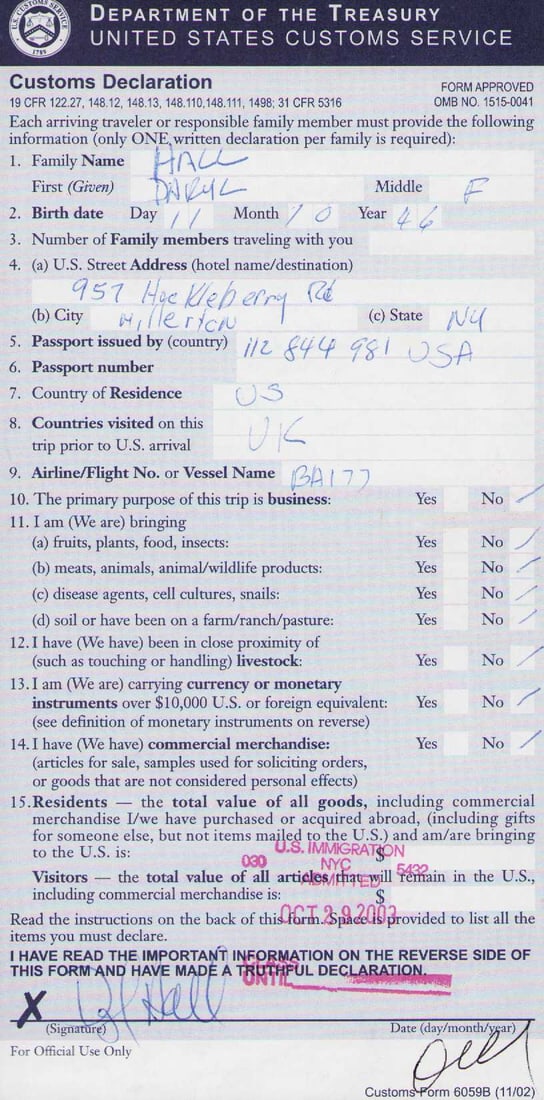 U.S. CUSTOMS SERVICE
1789
DEPARTMENT OF THE TREASURY
UNITED STATES CUSTOMS SERVICE
Customs Declaration
FORM APPROVED
19 CFR 122.27, 148.12, 148.13, 148.110,148.111, 1498; 31 CFR 5316 OMB NO. 1515-0041
Each arriving traveler or responsible family member must provide the following
information (only ONE written declaration per family is required):
1. Family Name HALL
First (Given) DARYL Middle F
2. Birth date Day 11 Month 10 Year 46
3. Number of Family members traveling with you
4. (a) U.S. Street Address (hotel name/destination)
957 Huckleberry Rd
(b) City Millerton (c) State NY
5. Passport issued by (country) 112 844 981 USA
6. Passport number
7. Country of Residence US
8. Countries visited on this UK
trip prior to U.S. arrival
9. Airline/Flight No. or Vessel Name BA177
10. The primary purpose of this trip is business: Yes No
11. I am (We are) bringing
(a) fruits, plants, food, insects: Yes No
(b) meats, animals, animal/wildlife products: Yes No
(c) disease agents, cell cultures, snails: Yes No
(d) soil or have been on a farm/ranch/pasture: Yes No
12. I have (We have) been in close proximity of
(such as touching or handling) livestock: Yes No
13. I am (We are) carrying currency or monetary
instruments over $10,000 U.S. or foreign equivalent: Yes No
(see definition of monetary instruments on reverse)
14. I have (We have) commercial merchandise: Yes No
(articles for sale, samples used for soliciting orders,
or goods that are not considered personal effects)
15. Residents — the total value of all goods, including commercial
merchandise I/we have purchased or acquired abroad, (including gifts
for someone else, but not items mailed to the U.S.) and am/are bringing
to the U.S. is: $
U.S. IMMIGRATION
030 NYC 5432
ADMITTED
Visitors — the total value of all articles that will remain in the U.S.,
including commercial merchandise is: $
OCT 29 2003
Read the instructions on the back of this form. Space is provided to list all the
items you must declare.
I HAVE READ THE IMPORTANT INFORMATION ON THE REVERSE SIDE OF
THIS FORM AND HAVE MADE A TRUTHFUL DECLARATION.
CLASS
UNTIL
X Hall
(Signature) Date (day/month/year)
For Official Use Only
Customs Form 6059B (11/02)